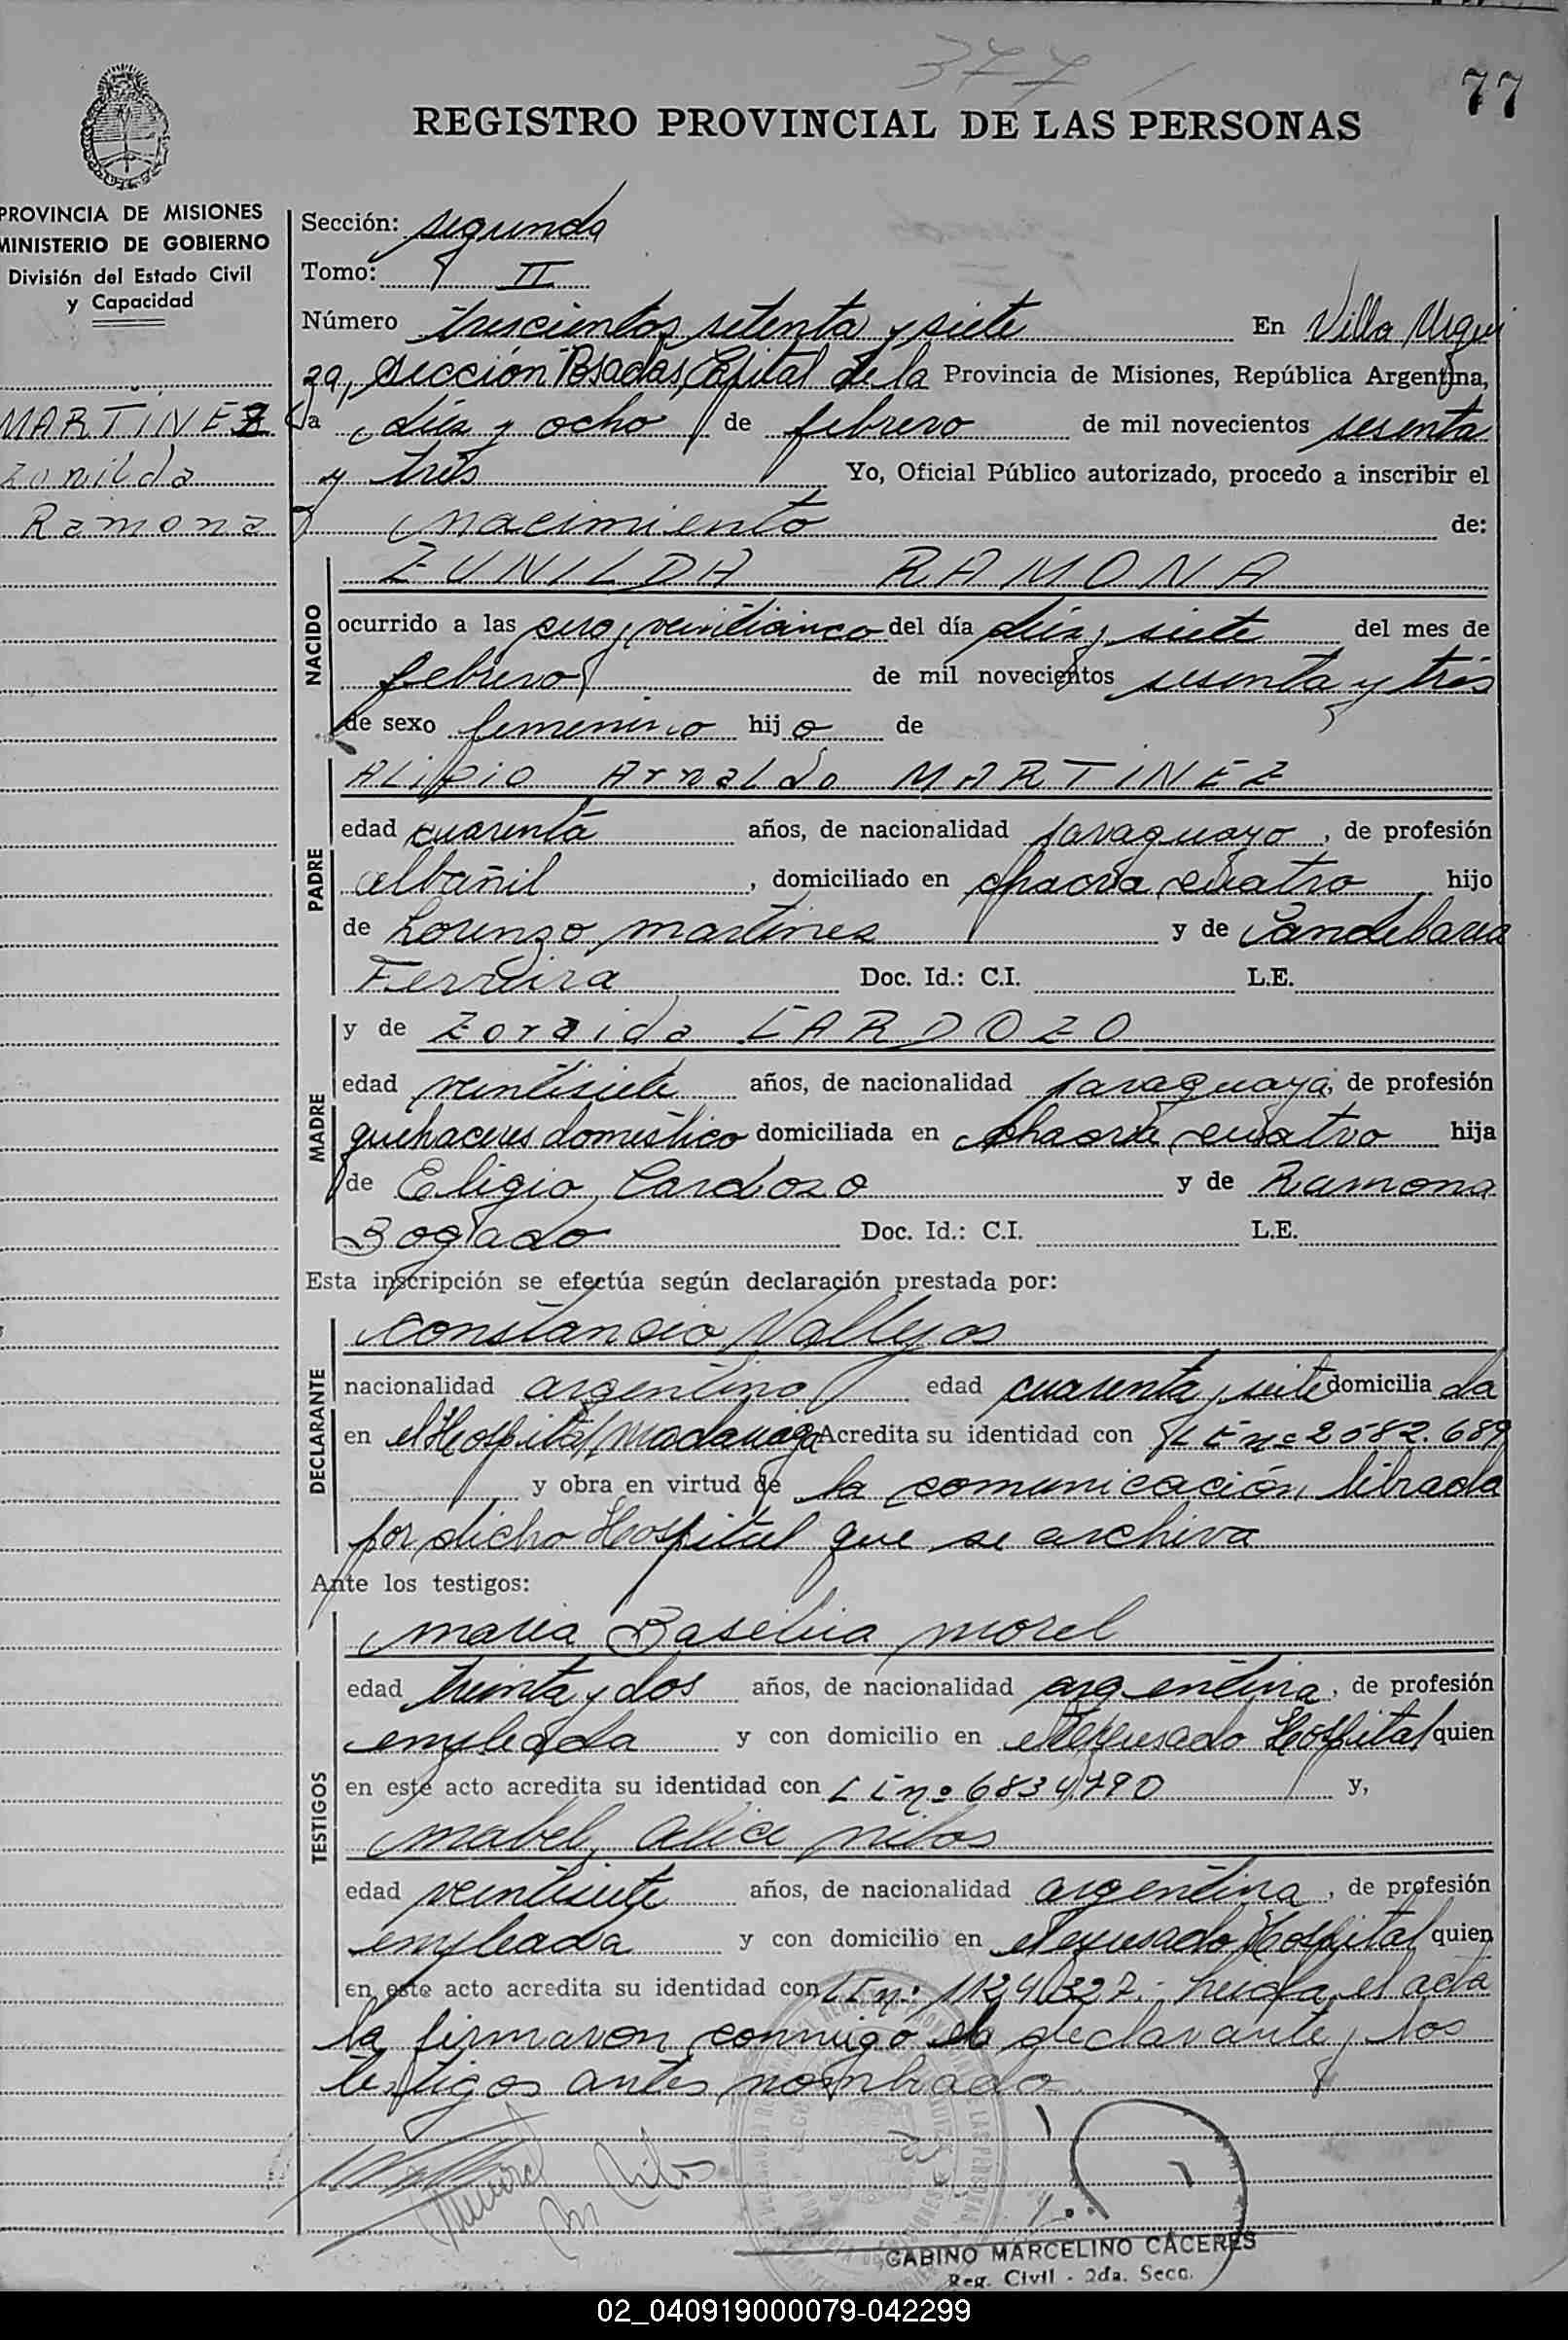 377
77
REGISTRO PROVINCIAL DE LAS PERSONAS
PROVINCIA DE MISIONES
MINISTERIO DE GOBIERNO
División del Estado Civil
y Capacidad
MARTINEZ
Zunilda
Ramona
Sección: segunda
Tomo: II
Número trescientos setenta y siete En Villa Urqui
za, sección Posadas, Capital de la Provincia de Misiones, República Argentina,
a diez y ocho de febrero de mil novecientos sesenta
y tres Yo, Oficial Público autorizado, procedo a inscribir el
nacimiento de:
NACIDO
ZUNILDA RAMONA
ocurrido a las cero y veinticinco del día diez y siete del mes de
febrero de mil novecientos sesenta y tres
de sexo femenino hijo de
PADRE
Alipio Arnaldo MARTINEZ
edad cuarenta años, de nacionalidad paraguayo, de profesión
albañil, domiciliado en chacra cuatro hijo
de Lorenzo Martinez y de Candelaria
Ferreira Doc. Id.: C.I. L.E.
MADRE
y de Zoraida CARDOZO
edad veintisiete años, de nacionalidad paraguaya, de profesión
quehaceres domestico domiciliada en chacra cuatro hija
de Eligio Cardozo y de Ramona
Bogado Doc. Id.: C.I. L.E.
Esta inscripción se efectúa según declaración prestada por:
DECLARANTE
Constancio Vallejos
nacionalidad argentino edad cuarenta y siete domicilia da
en el Hospital Madariaga Acredita su identidad con L E nº 2582.689
y obra en virtud de la comunicación librada
por dicho Hospital que se archiva
Ante los testigos:
TESTIGOS
Maria Basilia Morel
edad treinta y dos años, de nacionalidad argentina, de profesión
empleada y con domicilio en el expresado Hospital quien
en este acto acredita su identidad con L C nº 6834790 y,
Mabel Alice Nilos
edad veintisiete años, de nacionalidad argentina, de profesión
empleada y con domicilio en el expresado Hospital quien
en este acto acredita su identidad con nº: Leida el acta
la firmaron conmigo el declarante y los
testigos antes nombrado
GABINO MARCELINO CACERES
Reg. Civil - 2da. Secc.
02_040919000079-042299